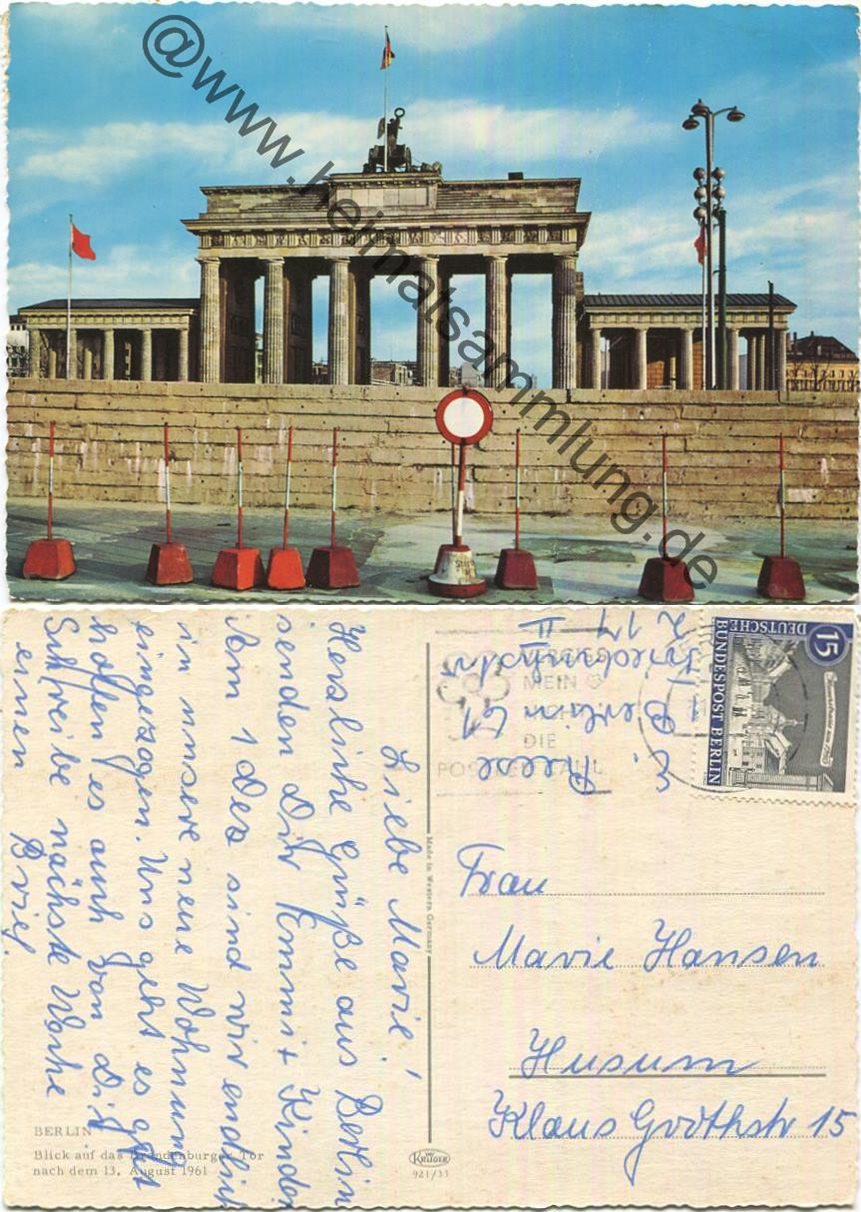 @www.heimatsammlung.de
Liebe Marie!
Herzliche Grüße aus Berlin
senden Dir Emmi + Kinder
Am 1 Dez sind wir endlich
in unsere neue Wohnung
eingezogen. Uns geht es gut
hoffen es auch von Dir
Schreibe nächste Woche
einen Brief.
BERLIN
Blick auf das Brandenburger Tor
nach dem 13. August 1961
Made in Western Germany
KRÜGER
921/33
E.
1 Berlin 61
II
MEIN
DIE
POSTLEITZAHL
15
DEUTSCHE
BUNDESPOST BERLIN
Frau
Marie Hansen
Husum
Klaus Grothstr 15